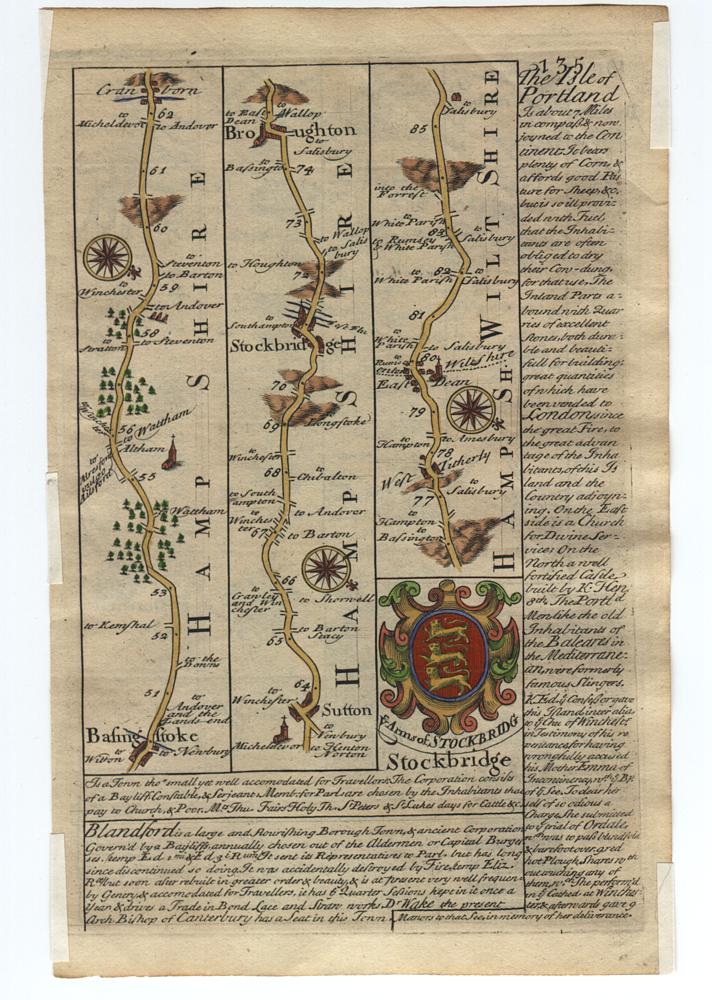 135
Cranborn
62
to Micheldevor
to Andover
61
60
to Steventon
to Barton
to Winchester
59
to Andover
58
to Stratton
to Steventon
56
to Waltham
Altham
55
to Waltham
53
to Kemshal
52
to the Downs
51
to Andover and the Lands-end
Basingstoke
to Newbury
HAMP SHIRE
to East Dean
to Wallop
Broughton
to Salisbury
74
73
to Wallop
to Salisbury
to Houghton
72
to Southampton
Stockbridge
70
69
Longstoke
to Winchester
68
to Chibalton
to Southampton
to Andover
to Winchester
67
to Barton
66
to Crawley and Winchester
to Shorwell
to Barton Stacy
65
64
to Winchester
Sutton
to Newbury
Micheldevor
to Henton Norton
HAMP SHIRE
to Salisbury
85
into the Forrest
to White Parish
83
to Salisbury
to Rumsey & White Parish
82
to White Parish
to Salisbury
81
to White Parish
to Salisbury
80
Wiltshire
East Dean
79
to Hampton
to Amesbury
78
West Titherly
to Salisbury
77
to Hampton
to Bassington
HAMP SH WILT SHIRE
ye Arms of STOCKBRIDG
Stockbridge
Is a Town tho' small yet well accomodated for Travellors. The Corporation consists
of a Bayliff, Constable, & Serjeant. Memb. for Parl. are chosen by the Inhabitants that
pay to Church, & Poor. Mt. Thu. Fairs Holy Th. St. Peters & St. Lukes days for Cattle &c.
Blandford is a large and flourishing Borough Town, & ancient Corporation
Govern'd by a Bayliff annually chosen out of the Aldermen or Capital Burge
ses. temp Ed. 3
It sent its Representatives to Parl. but has long
since discontinued so doing. It was accidentally destroyed by Fire, temp Eliz.
but soon after rebuilt in greater order & beauty, & is at present very well frequen
by Gentry, & accomodated for Travellers, it has Quarter Sessions kept in it once a
Year & drives a Trade in Bond Lace and Straw works. Dr. Wake the present
Arch-Bishop of Canterbury has a Seat in this Town.
The Isle of
Portland
Is about 7 Miles
in compass & now
joyned to the Con
tinent. It bears
plenty of Corn, &
affords good Pas
ture for Sheep &c.
but is so ill provi-
ded with Fuel,
that the Inhabi-
tants are often
obliged to dry
their Cow-dung,
for that use. The
Inland Parts a-
bound with Quar
ries of excellent
Stones both dura-
ble and beauti-
full for building;
great quantities
of which have
been vended to
London since
the great Fire, to
the great advan
tage of the Inha
bitants, of this Is
land and the
Country adjoyn-
ing. On the East
side is a Church
for Divine Ser-
vice: On the
North a well
fortified Castle
built by K. Hen
8th. The Portld
Men like the old
Inhabitants of
the Baleares in
the Mediterrane-
an, were formerly
famous Slingers.
K. Ed. ye Confessor gave
this Island inter alia
to ye Chu. of Winchest.
in Testimony of his re
pentance for having
wrongfully accused
his Mother Emma of
Incontinency wth. ye Bp.
of ye See. To clear her
self of so odious a
Charge She submitted
to ye trial of Ordale,
was to pass blindfold
& barefoot over 9 red
hot Plough Shares wth
out touching any of
them, wch. She perform'd
in ye Cathed. at Winches
ter, & afterwards gave 9
Manors to that See, in memory of her deliverance.